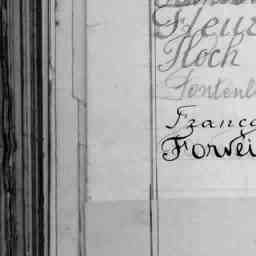 Fleur
Floch
Fontenl
França
Forvei